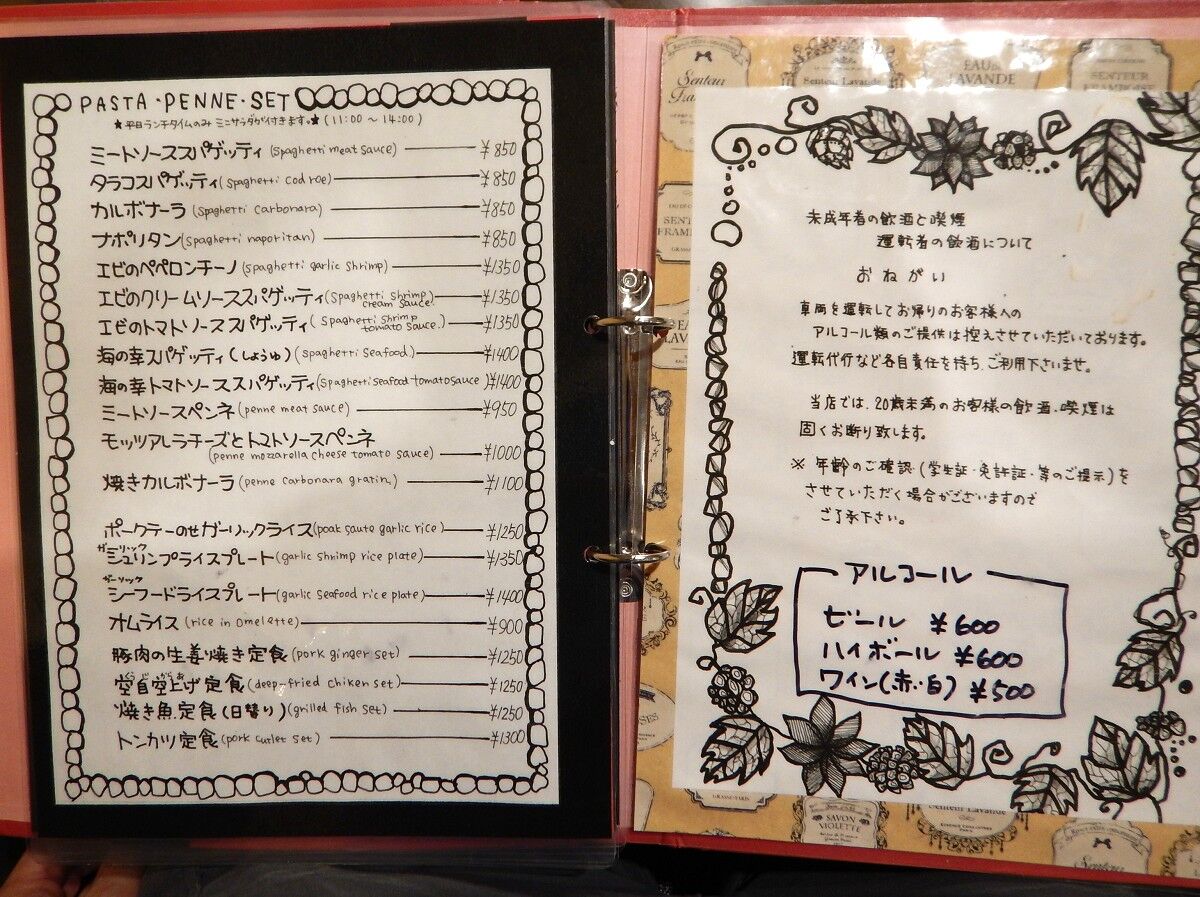 PASTA・PENNE・SET
★平日ランチタイムのみ ミニサラダが付きます。★(11:00 ~ 14:00)
ミートソーススパゲッティ (spaghetti meat sauce) ¥850
タラコスパゲッティ (spaghetti cod roe) ¥850
カルボナーラ (spaghetti carbonara) ¥850
ナポリタン (spaghetti naporitan) ¥850
エビのペペロンチーノ (spaghetti garlic shrimp) ¥1350
エビのクリームソーススパゲッティ (spaghetti shrimp cream sauce) ¥1350
エビのトマトソーススパゲッティ (spaghetti shrimp tomato sauce) ¥1350
海の幸スパゲッティ(しょうゆ) (spaghetti seafood) ¥1400
海の幸トマトソーススパゲッティ (spaghetti seafood tomato sauce) ¥1400
ミートソースペンネ (penne meat sauce) ¥950
モッツアレラチーズとトマトソースペンネ
(penne mozzarella cheese tomato sauce) ¥1000
焼きカルボナーラ (penne carbonara gratin) ¥1100
ポークテーのせガーリックライス (poak saute garlic rice) ¥1250
ガーリック
シュリンプライスプレート (garlic shrimp rice plate) ¥1350
ガーリック
シーフードライスプレート (garlic seafood rice plate) ¥1400
オムライス (rice in omelette) ¥900
豚肉の生姜り焼き定食 (pork ginger set) ¥1250
空自空上げ定食 (deep-fried chiken set) ¥1250
焼き魚定食(日替り) (grilled fish set) ¥1250
トンカツ定食 (pork cutlet set) ¥1300
未成年者の飲酒と喫煙
運転者の飲酒について
おねがい
車両を運転してお帰りのお客様への
アルコール類のご提供は控えさせていただいております。
運転代行など各自責任を持ち、ご利用下さいませ。
当店では、20歳未満のお客様の飲酒・喫煙は
固くお断り致します。
※ 年齢のご確認(学生証・免許証・等のご提示)を
させていただく場合がございますので
ご了承下さい。
アルコール
ビール ¥600
ハイボール ¥600
ワイン(赤・白) ¥500
Senteur
Senteur Lavande
EAU
LAVANDE
SENTEUR
FRAMBOISE
SAVON
VIOLETTE
Senteur Lavande